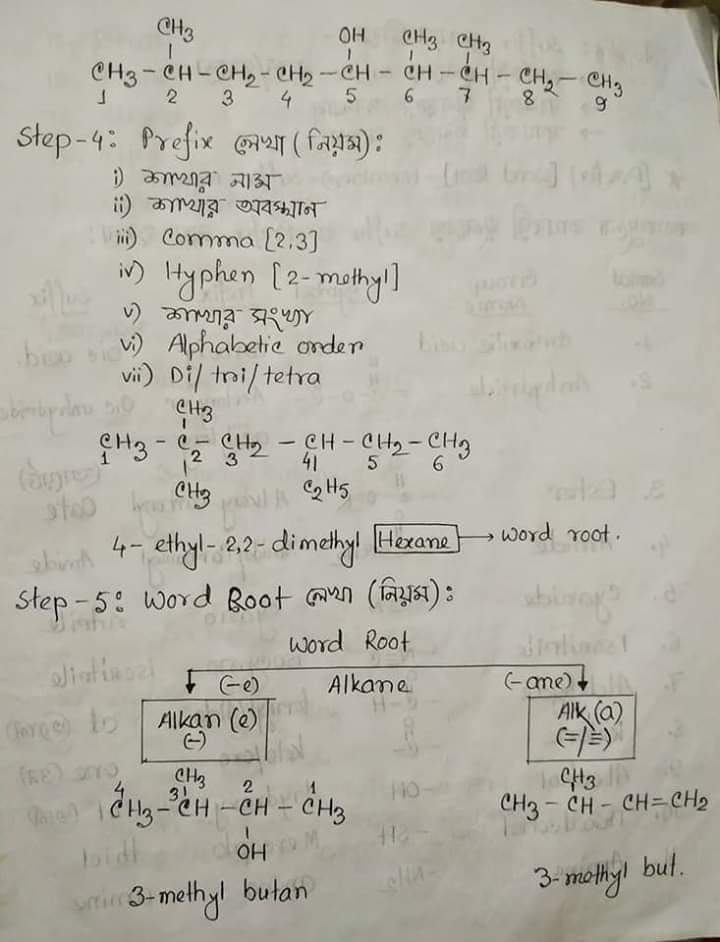 CH3
OH CH3 CH3
CH3 - CH - CH2 - CH2 - CH - CH - CH - CH2 - CH3
1 2 3 4 5 6 7 8 9
Step-4: Prefix লেখা (নিয়ম):
i) শাখার নাম
ii) শাখার অবস্থান
iii) Comma [2,3]
iv) Hyphen [2-methyl]
v) শাখার সংখ্যা
vi) Alphabetic order
vii) Di/tri/tetra
CH3
CH3 - C - CH2 - CH - CH2 - CH3
1 2 3 4 5 6
CH3 C2H5
4-ethyl-2,2-dimethyl Hexane → word root.
Step-5: Word Root লেখা (নিয়ম):
Word Root
(-e) Alkane (-ane)
Alkan(e) Alk(a)
(-) (=/≡)
CH3 CH3
4 3 2 1
CH3 - CH - CH - CH3 CH3 - CH - CH = CH2
OH
3-methyl butan 3-methyl but.